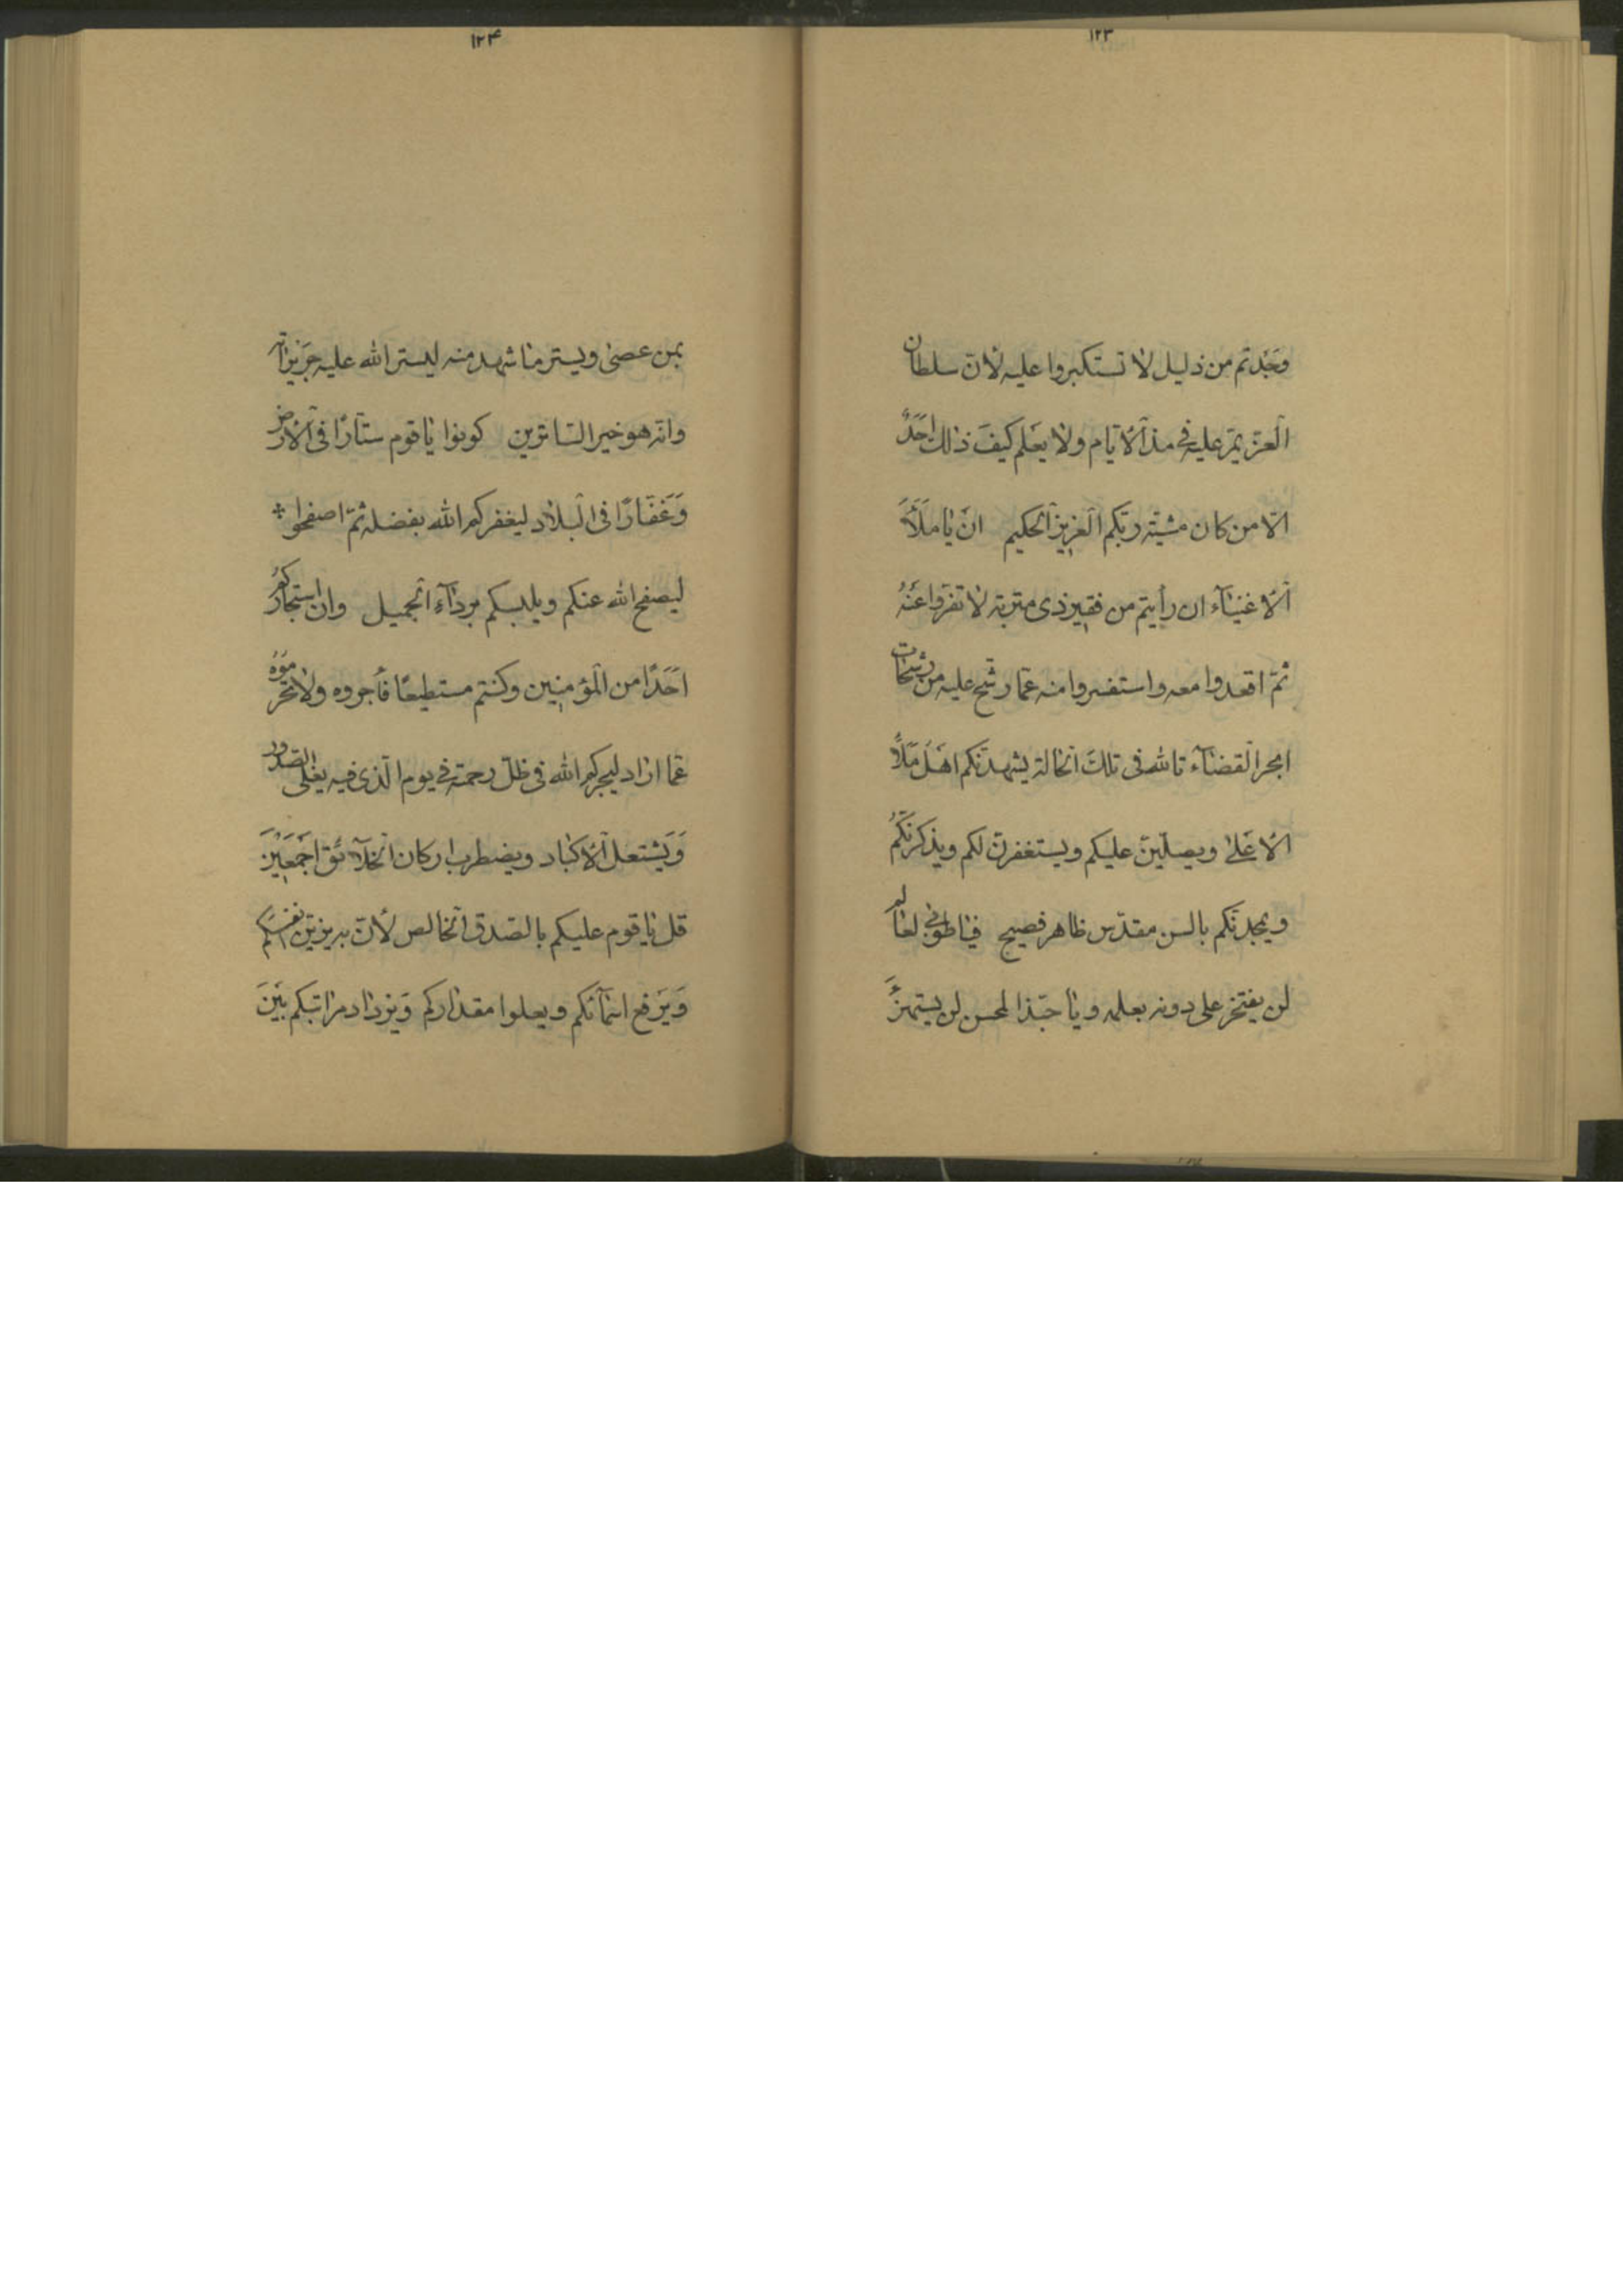 ۱۲۳
وجدتم من ذليل لا تستكبروا عليه لأنّ سلطان
العزّ يمرّ عليه في مذّ الأيّام ولا يعلم كيف ذلك احد
الّا من كان مشيّته ربّكم العزيز الحكيم ان يا ملأ
الأغنياء ان رأيتم من فقير ذي متربة لا تفرّوا عنه
ثمّ اقعدوا معه واستفسروا منه عمّا رشّح عليه من رشحات
ابحر القضاء تالله في تلك الحالة يشهدنّكم اهل ملأ
الأعلى ويصلّينّ عليكم ويستغفرنّ لكم ويذكرنّكم
ويمجدنّكم بالسن مقدّس طاهر فصيح فيا طوبى لعالم
لن يفتخر على دونه بعلمه ويا حبّذا لمحسن لن يستهزء
۱۲۴
بمن عصى ويستر ما شهد منه ليستر الله عليه جريراته
وانّه هو خير الساترين كونوا يا قوم ستّارًا في الأرض
وغفّارًا في البلاد ليغفركم الله بفضله ثمّ اصفحوا
ليصفح الله عنكم ويلبسكم برداء الجميل وان استجاركم
احدًا من المؤمنين وكنتم مستطيعًا فأجروه ولا تحرموه
عمّا اراد ليجركم الله في ظلّ رحمته في يوم الّذي فيه يغلي الصدور
ويشتعل الأكباد ويضطرب اركان الخلائق اجمعين
قل يا قوم عليكم بالصدق الخالص لأنّ به يزيّن انفسكم
ويرفع اسمائكم ويعلوا مقداركم ويزداد مراتبكم بين